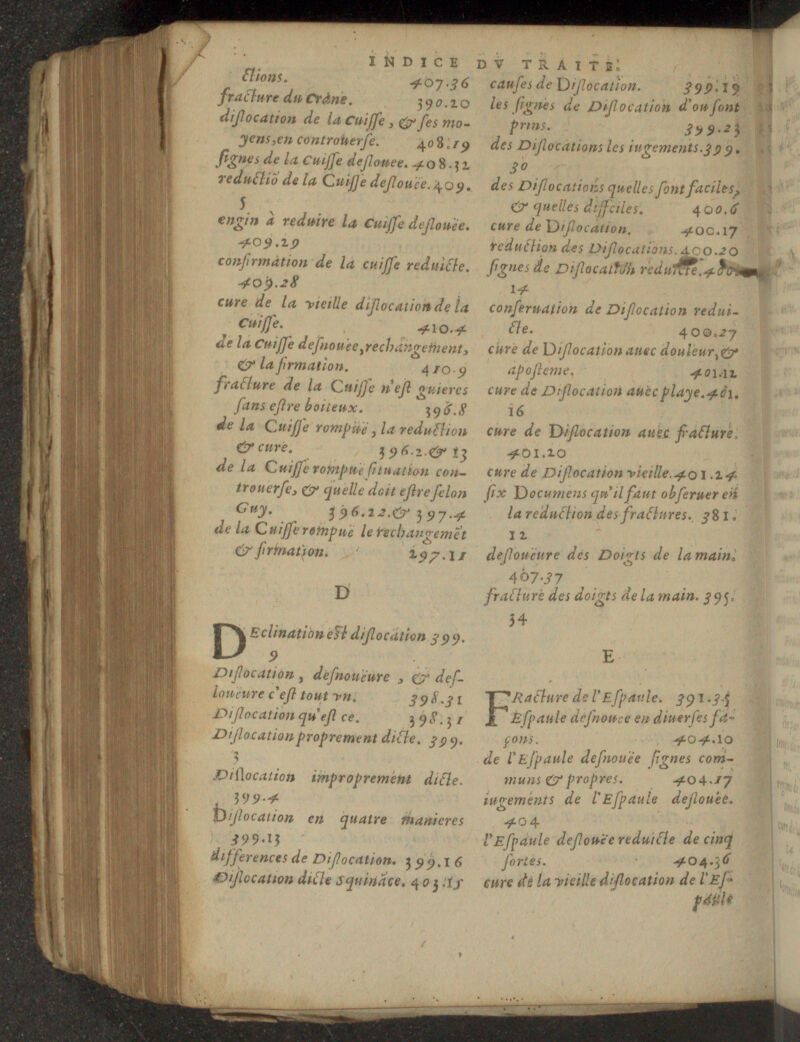 INDICE DV TRAITE.
ctions. 407.36
fracture du Crane. 390.20
dislocation de la Cuisse, & ses mo-
yens, en controuerse. 408.19
signes de la Cuisse deslouee. 408.32
reductiō de la Cuisse deslouëe. 409.
5
engin à reduire la Cuisse deslouëe.
409.19
confirmation de la cuisse reduicte.
409.28
cure de la vieille dislocation de la
Cuisse. 410.4
de la Cuisse desnouëe, rechangement,
& la firmation. 410.9
fracture de la Cuisse n'est guieres
sans estre boiteux. 396.8
de la Cuisse rompuë, la reduction
& cure. 396.2.& 13
de la Cuisse rompuë situation con-
trouerse, & quelle doit estre selon
Guy. 396.22.& 397.4
de la Cuisse rompuë le rechangemēt
& firmation. 297.11
D
DEclination est dislocation 399.
9
Dislocation, desnouëure, & des-
louëure c'est tout vn. 398.31
Dislocation qu'est ce. 398.31
Dislocation proprement dicte. 399.
3
Dislocation improprement dicte.
399.4
Dislocation en quatre manieres
399.13
differences de Dislocation. 399.16
Dislocation dicte squinace. 403.15
causes de Dislocation. 399.19
les signes de Dislocation d'ou sont
prins. 399.23
des Dislocations les iugements. 399.
30
des Dislocations quelles sont faciles,
& quelles difficiles. 400.6
cure de Dislocation. 400.17
reduction des Dislocations. 400.20
signes de Dislocation reduicte.
14
conseruation de Dislocation redui-
cte. 400.27
cure de Dislocation auec douleur, &
aposteme. 401.12
cure de Dislocation auèc playe. 401.
16
cure de Dislocation auec fracture.
401.20
cure de Dislocation vieille. 401.24
six Documens qu'il faut obseruer en
la reduction des fractures. 381.
12
deslouëure des Doigts de la main.
407.37
fracture des doigts de la main. 395.
34
E
FRacture de l'Espaule. 391.34
Espaule desnouee en diuerses fa-
çons. 404.10
de l'Espaule desnouëe signes com-
muns & propres. 404.17
iugements de l'Espaule deslouëe.
404
l'Espaule deslouëe reduicte de cinq
sortes. 404.36
cure de la vieille dislocation de l'Es-
paule